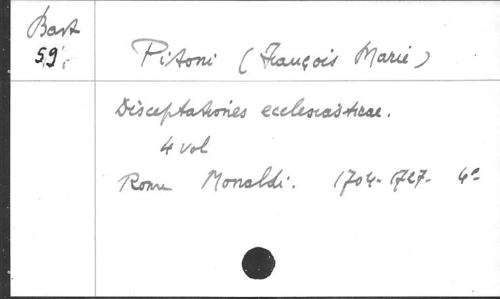 Bast
59.
Pitoni (François Marie)
Disceptationes ecclesiasticae.
4 vol
Rome Monaldi. 1704-1727- 4°